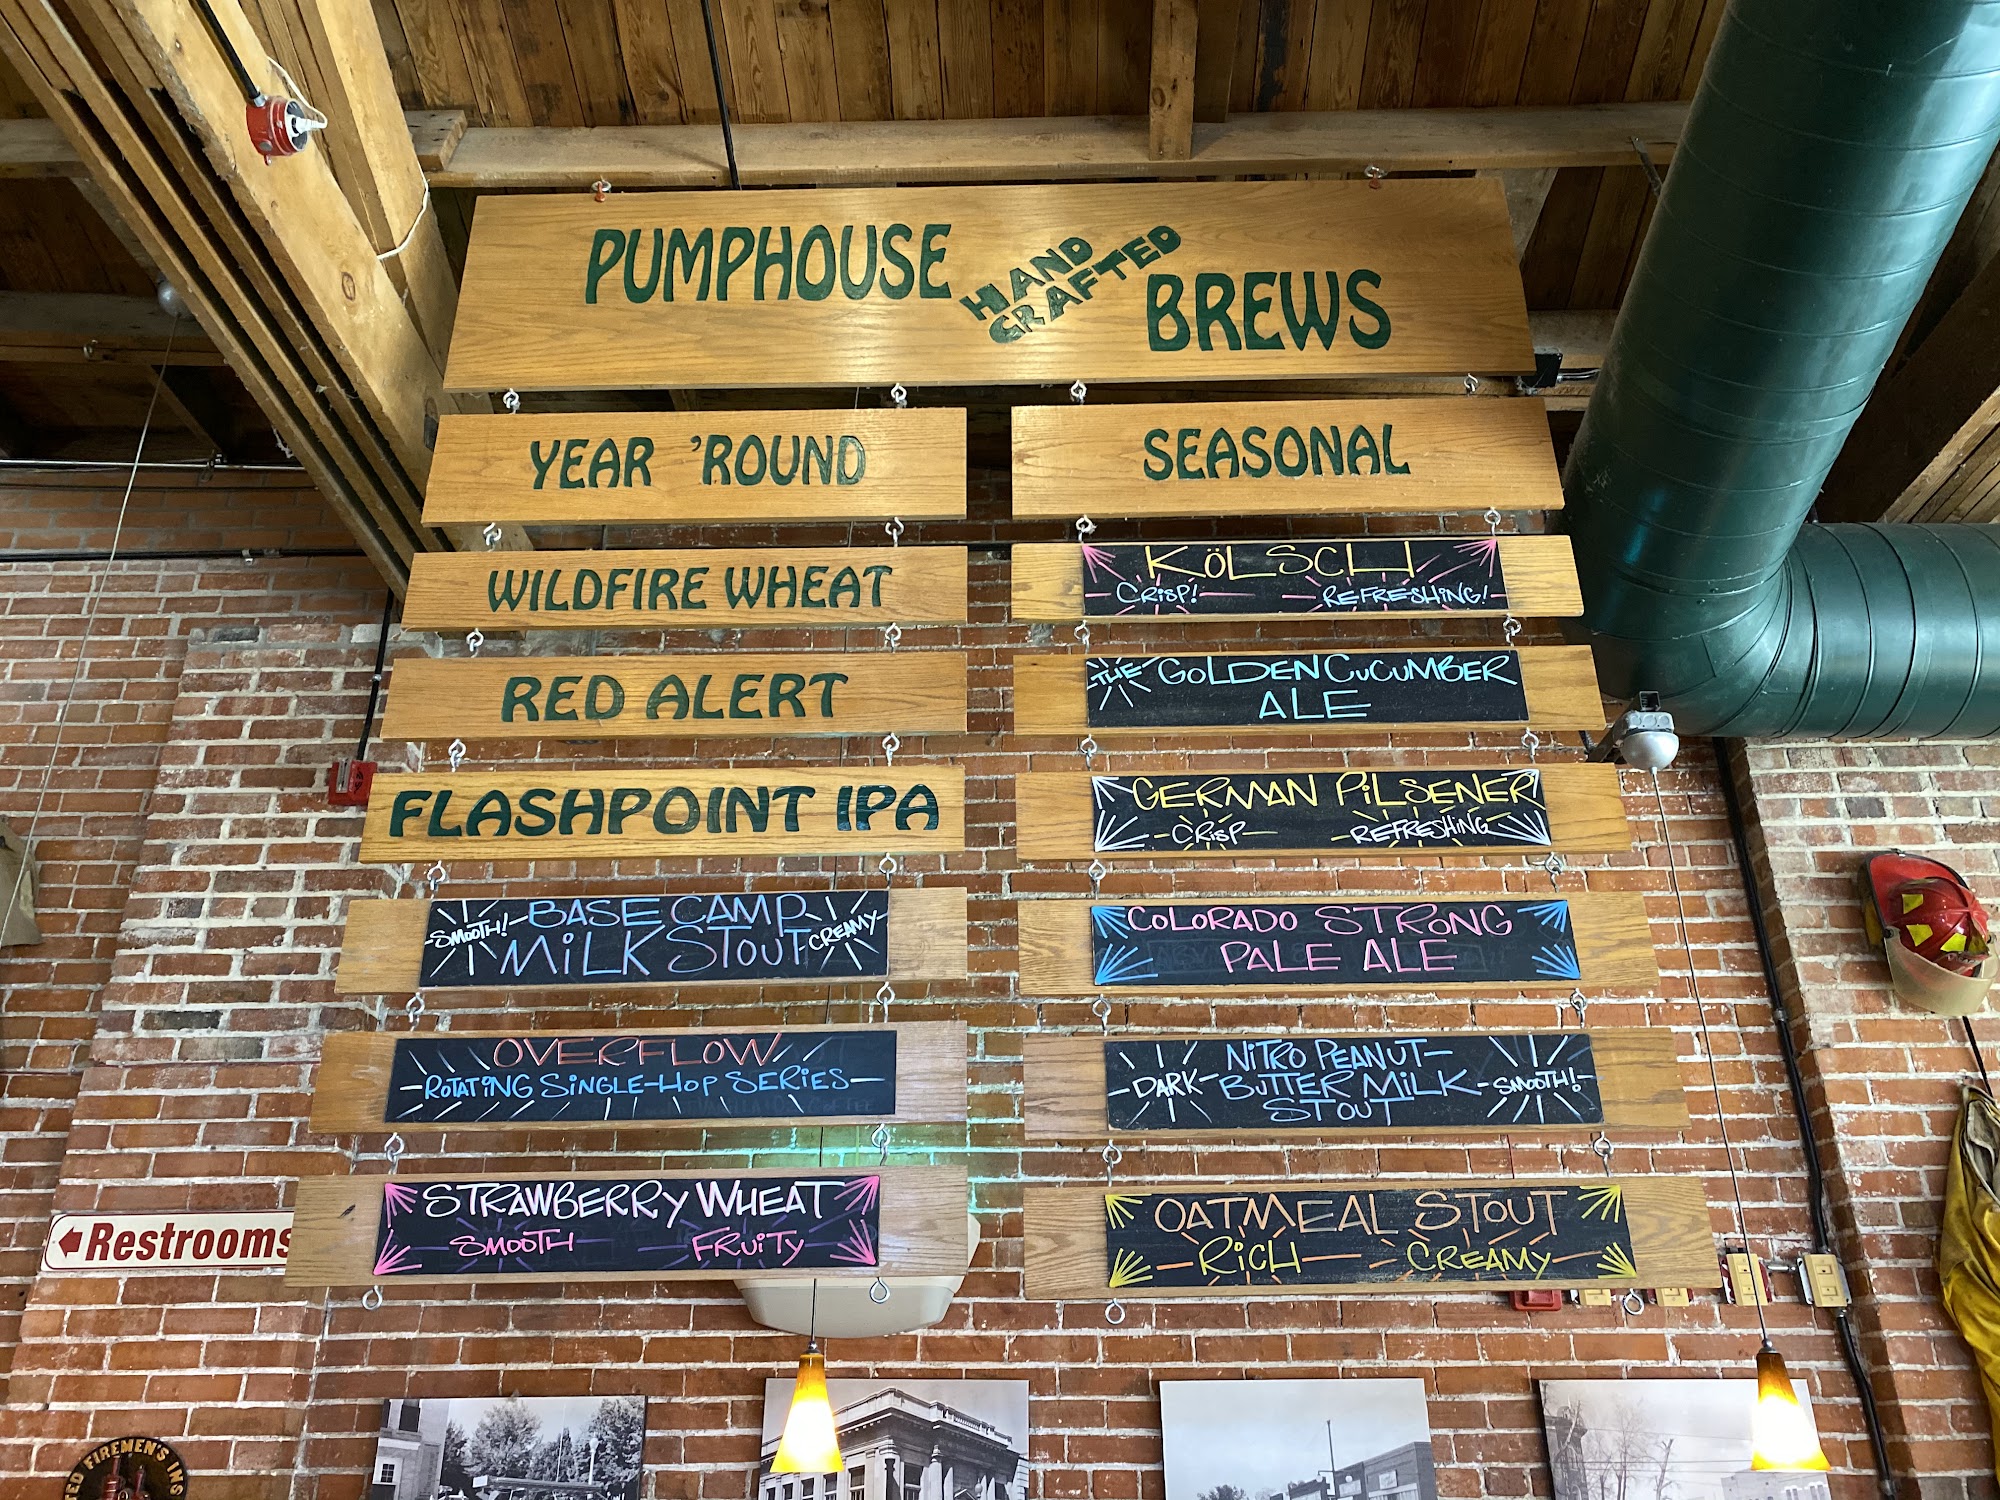 PUMPHOUSE HAND CRAFTED BREWS
YEAR 'ROUND
WILDFIRE WHEAT
RED ALERT
FLASHPOINT IPA
SMOOTH! BASE CAMP MILK STOUT CREAMY
OVERFLOW
ROTATING SINGLE-HOP SERIES
STRAWBERRY WHEAT
SMOOTH FRUITY
SEASONAL
KÖLSCH
CRISP! REFRESHING!
THE GOLDEN CUCUMBER
ALE
GERMAN PILSENER
CRISP REFRESHING
COLORADO STRONG
PALE ALE
NITRO PEANUT
DARK BUTTER MILK SMOOTH!
STOUT
OATMEAL STOUT
RICH CREAMY
Restrooms
FIREMEN'S INS